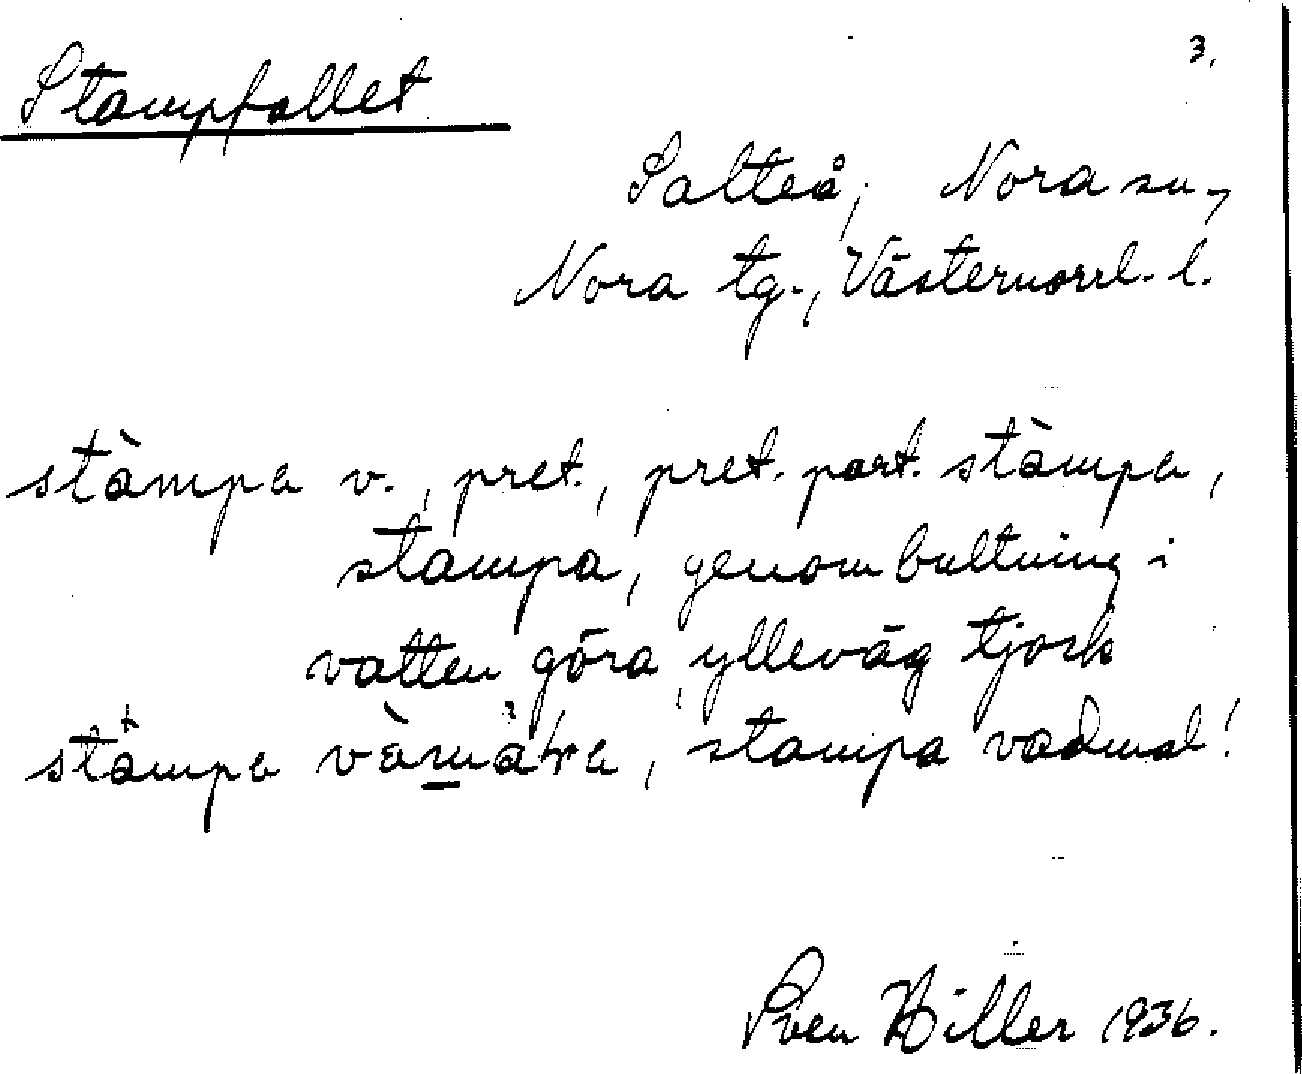 3.
Stampfallet
Salteå, Nora sn,
Nora tg., Västernorrl. l.
stàmpa v., pret., pret. part. stàmpa,
stampa, genom bultning i
vatten göra ylleväg tjock
stampa, stampa vadmal!
Sven Hiller 1936.